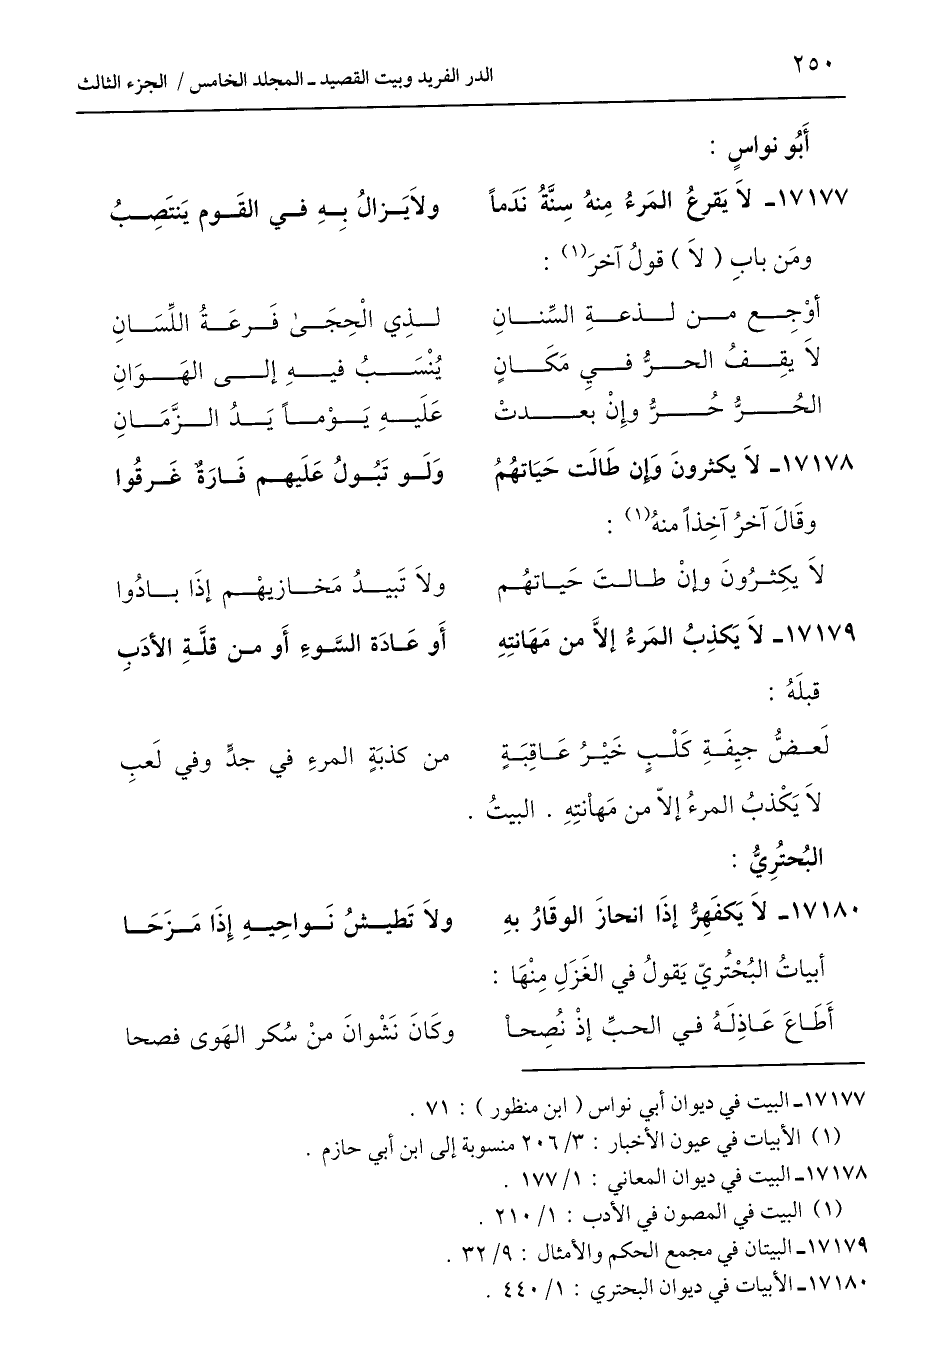 ٢٥٠
الدر الفريد وبيت القصيد ـ المجلد الخامس / الجزء الثالث
أَبُو نواسٍ :
١٧١٧٧ـ لاَ يَقرعُ المَرءُ مِنهُ سِنَّةُ نَدَماً ولاَيَزالُ بِهِ في القَوم يَنتَصِبُ
ومَن بابِ ( لاَ ) قولُ آخرَ(١) :
أوْجِع من لذعةِ السِّنانِ لذِي الْحِجَىٰ قَرعَةُ اللِّسَانِ
لاَ يقِفُ الحرُّ في مَكَانٍ يُنْسَبُ فيهِ إلى الهَوَانِ
الحُرُّ حُرُّ وإنْ بعدتْ عَلَيهِ يَوْماً يَدُ الزَّمَانِ
١٧١٧٨ـ لاَ يكثرونَ وَإن طَالَت حَيَاتهُمُ وَلَو تَبُولُ عَلَيهم فَارَةٌ غَرقُوا
وقَالَ آخرُ آخِذاً منهُ(١) :
لاَ يكِثرُونَ وإنْ طالتَ حَياتهُم ولاَ تَبيدُ مَخازيهْم إذَا بادُوا
١٧١٧٩ـ لاَ يَكذِبُ المَرءُ إلاَّ من مَهَانتِهِ أَو عَادَة السَّوءِ أَو من قلَّةِ الأدَبِ
قبلَهُ :
لَعضُّ جيِفَةِ كَلْبٍ خَيْرُ عَاقِبَةٍ من كذبَةٍ المرءِ في جدٍّ وفي لَعبِ
لاَ يَكْذبُ المرءُ إلاّ من مَهاْنتِهِ . البيتُ .
البُحتُرِيُّ :
١٧١٨٠ـ لاَ يَكفَهِرُّ إذَا انحازَ الوقَارُ بهِ ولاَ تَطيشُ نَواحِيهِ إِذَا مَزَحَا
أبياتُ البُحْتُريّ يَقولُ في الغَزَلِ مِنْهَا :
أَطَاعَ عَاذِلَهُ في الحبِّ إذْ نُصِحاْ وكَانَ نَشْوانَ منْ سُكر الهَوى فصحا
١٧١٧٧ـ البيت في ديوان أبي نواس ( ابن منظور ) : ٧١ .
(١) الأبيات في عيون الأخبار : ٣/ ٢٠٦ منسوبة إلى ابن أبي حازم .
١٧١٧٨ـ البيت في ديوان المعاني : ١/ ١٧٧ .
(١) البيت في المصون في الأدب : ١/ ٢١٠ .
١٧١٧٩ـ البيتان في مجمع الحكم والأمثال : ٩/ ٣٢ .
١٧١٨٠ـ الأبيات في ديوان البحتري : ١/ ٤٤٠ .